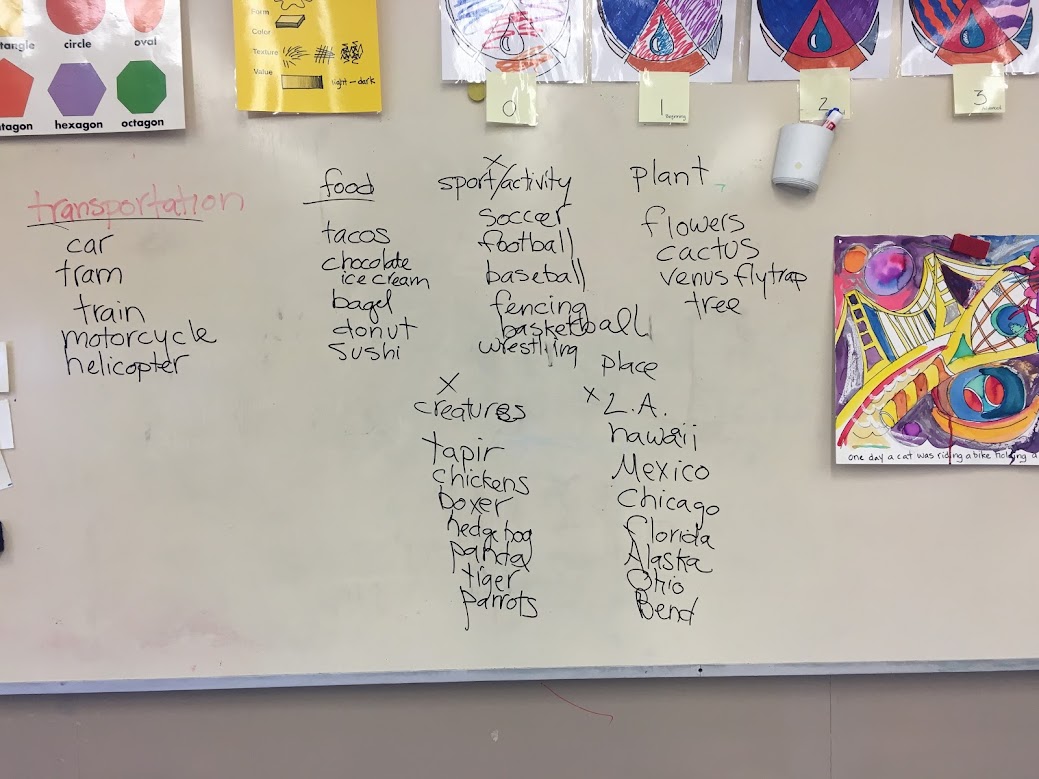 tangle circle oval
ntagon hexagon octagon
Form
Color
Texture
Value light - dark
0
1
Beginning
2
3
transportation
car
tram
train
motorcycle
helicopter
food
tacos
chocolate
ice cream
bagel
donut
sushi
x
sport/activity
soccer
football
baseball
fencing
basketball
wrestling
plant
flowers
cactus
venus flytrap
tree
x
creatures
tapir
chickens
boxer
hedgehog
panda
tiger
parrots
place
x L.A.
hawaii
Mexico
Chicago
florida
Alaska
Ohio
Bend
one day a cat was riding a bike holding a